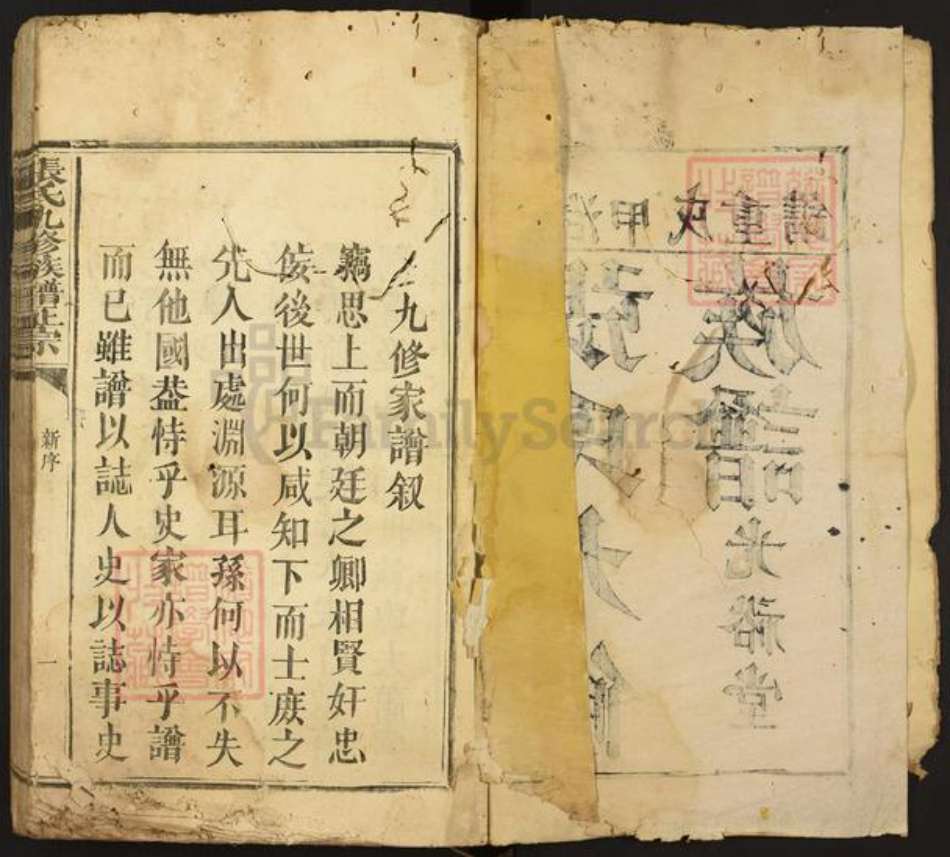 治甲戌重鐫
張氏九修
族譜光裕堂
九修家譜叙
竊思上而朝廷之卿相賢奸忠
佞後世何以咸知下而士庶之
先人出處淵源耳孫何以不失
無他國葢恃乎史家亦恃乎譜
而已雖譜以誌人史以誌事史
張氏九修族譜正宗
新序
一
FamilySearch